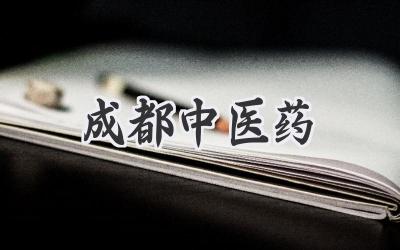 成都中医药